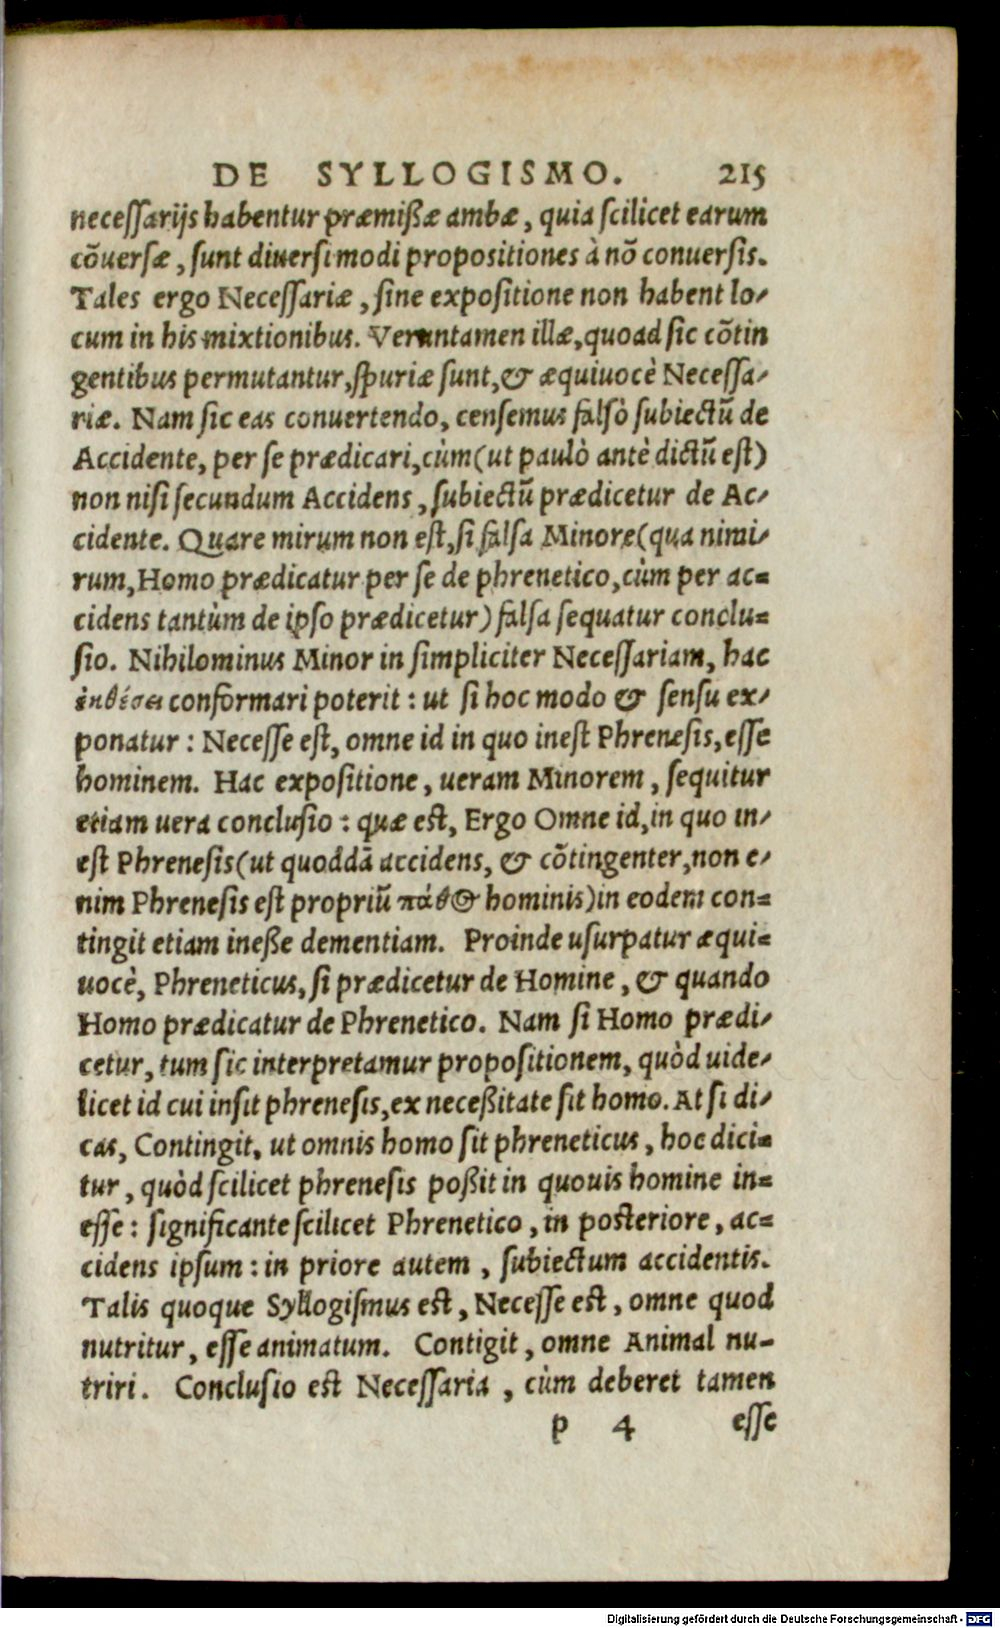 DE SYLLOGISMO. 215
necessarijs habentur præmißæ ambæ, quia scilicet earum
cōuersæ, sunt diuersi modi propositiones à nō conuersis.
Tales ergo Necessariæ, sine expositione non habent lo-
cum in his mixtionibus. Veruntamen illæ, quoad sic cōtin
gentibus permutantur, spuriæ sunt, & æquiuocè Necessa-
riæ. Nam sic eas conuertendo, censemus falsò subiectū de
Accidente, per se prædicari, cùm (ut paulò antè dictū est)
non nisi secundum Accidens, subiectū prædicetur de Ac-
cidente. Quare mirum non est, si falsa Minore (qua nimi-
rum, Homo prædicatur per se de phrenetico, cùm per ac=
cidens tantùm de ipso prædicetur) falsa sequatur conclu=
sio. Nihilominus Minor in simpliciter Necessariam, hac
ἐκθέσει conformari poterit: ut si hoc modo & sensu ex-
ponatur: Necesse est, omne id in quo inest Phrenesis, esse
hominem. Hac expositione, ueram Minorem, sequitur
etiam uera conclusio: quæ est, Ergo Omne id, in quo in-
est Phrenesis (ut quoddā accidens, & cōtingenter, non e-
nim Phrenesis est propriū πάθος hominis) in eodem con=
tingit etiam ineße dementiam. Proinde usurpatur æqui=
uocè, Phreneticus, si prædicetur de Homine, & quando
Homo prædicatur de Phrenetico. Nam si Homo prædi-
cetur, tum sic interpretamur propositionem, quòd uide-
licet id cui insit phrenesis, ex neceßitate sit homo. At si di-
cas, Contingit, ut omnis homo sit phreneticus, hoc dici=
tur, quòd scilicet phrenesis poßit in quouis homine in=
esse: significante scilicet Phrenetico, in posteriore, ac=
cidens ipsum: in priore autem, subiectum accidentis.
Talis quoque Syllogismus est, Necesse est, omne quod
nutritur, esse animatum. Contigit, omne Animal nu-
triri. Conclusio est Necessaria, cùm deberet tamen
p 4 esse
Digitalisierung gefördert durch die Deutsche Forschungsgemeinschaft - DFG